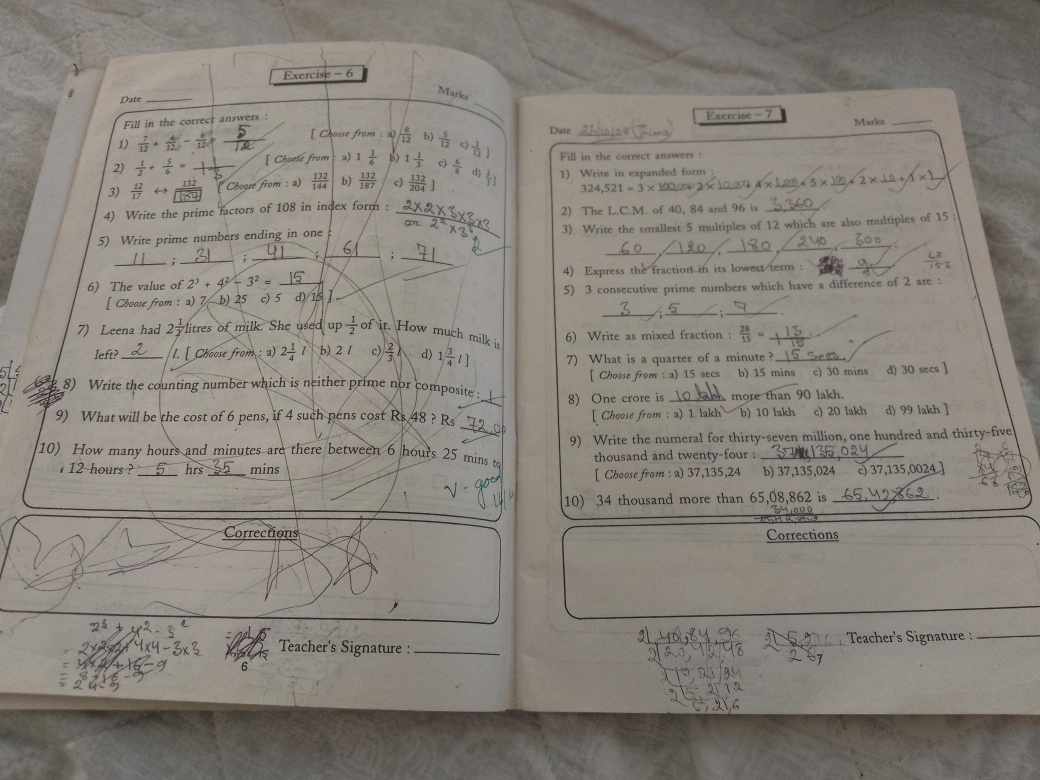 Exercise – 6
Date
Marks
Fill in the correct answers :
[ Choose from : a) 8/12 b) 5/12 c) 1/12 ]
2) 1/2 + 5/6 =
[ Choose from : a) 1 1/6 b) 1 1/3 c) 6/8 d) 2/3 ]
3) 12/17 ↔ 132/187 [ Choose from : a) 132/144 b) 132/187 c) 132/204 ]
4) Write the prime factors of 108 in index form : 2×2×3×3×3
or 2² × 3³
5) Write prime numbers ending in one :
11 ; 31 ; 41 ; 61 ; 71
6) The value of 2³ + 4² – 3² = 15
[ Choose from : a) 7 b) 25 c) 5 d) 15 ]
7) Leena had 2 1/2 litres of milk. She used up 1/2 of it. How much milk is
left? 2 l. [ Choose from : a) 2 1/4 l b) 2 l c) 2/3 l d) 1 3/4 l ]
8) Write the counting number which is neither prime nor composite : 1
9) What will be the cost of 6 pens, if 4 such pens cost Rs 48 ? Rs 72.0
10) How many hours and minutes are there between 6 hours 25 mins to
12 hours ? 5 hrs 35 mins
V. good
Corrections
2³ + 4² - 3²
2×2×2+4×4-3×3
Teacher's Signature :
6
Exercise – 7
Date
Marks
Fill in the correct answers :
1) Write in expanded form :
324,521 = 3 × 100,000 2 × 10,000 4 × 1,000 + 5 × 100 + 2 × 10 + 1 × 1
2) The L.C.M. of 40, 84 and 96 is 3,360
3) Write the smallest 5 multiples of 12 which are also multiples of 15 :
60 , 120 , 180 , 240 , 300
4) Express the fraction in its lowest term :
63/153
5) 3 consecutive prime numbers which have a difference of 2 are :
3 , 5 , 7
6) Write as mixed fraction : 28/15 = 1 13/15
7) What is a quarter of a minute ? 15 secs
[ Choose from : a) 15 secs b) 15 mins c) 30 mins d) 30 secs ]
8) One crore is 10 lakh more than 90 lakh.
[ Choose from : a) 1 lakh b) 10 lakh c) 20 lakh d) 99 lakh ]
9) Write the numeral for thirty-seven million, one hundred and thirty-five
thousand and twenty-four : 37,135,024
[ Choose from : a) 37,135,24 b) 37,135,024 c) 37,135,0024 ]
10) 34 thousand more than 65,08,862 is 65,42,862 .
34,000
Corrections
2 40,84,96
2 20,42,48
Teacher's Signature :
7